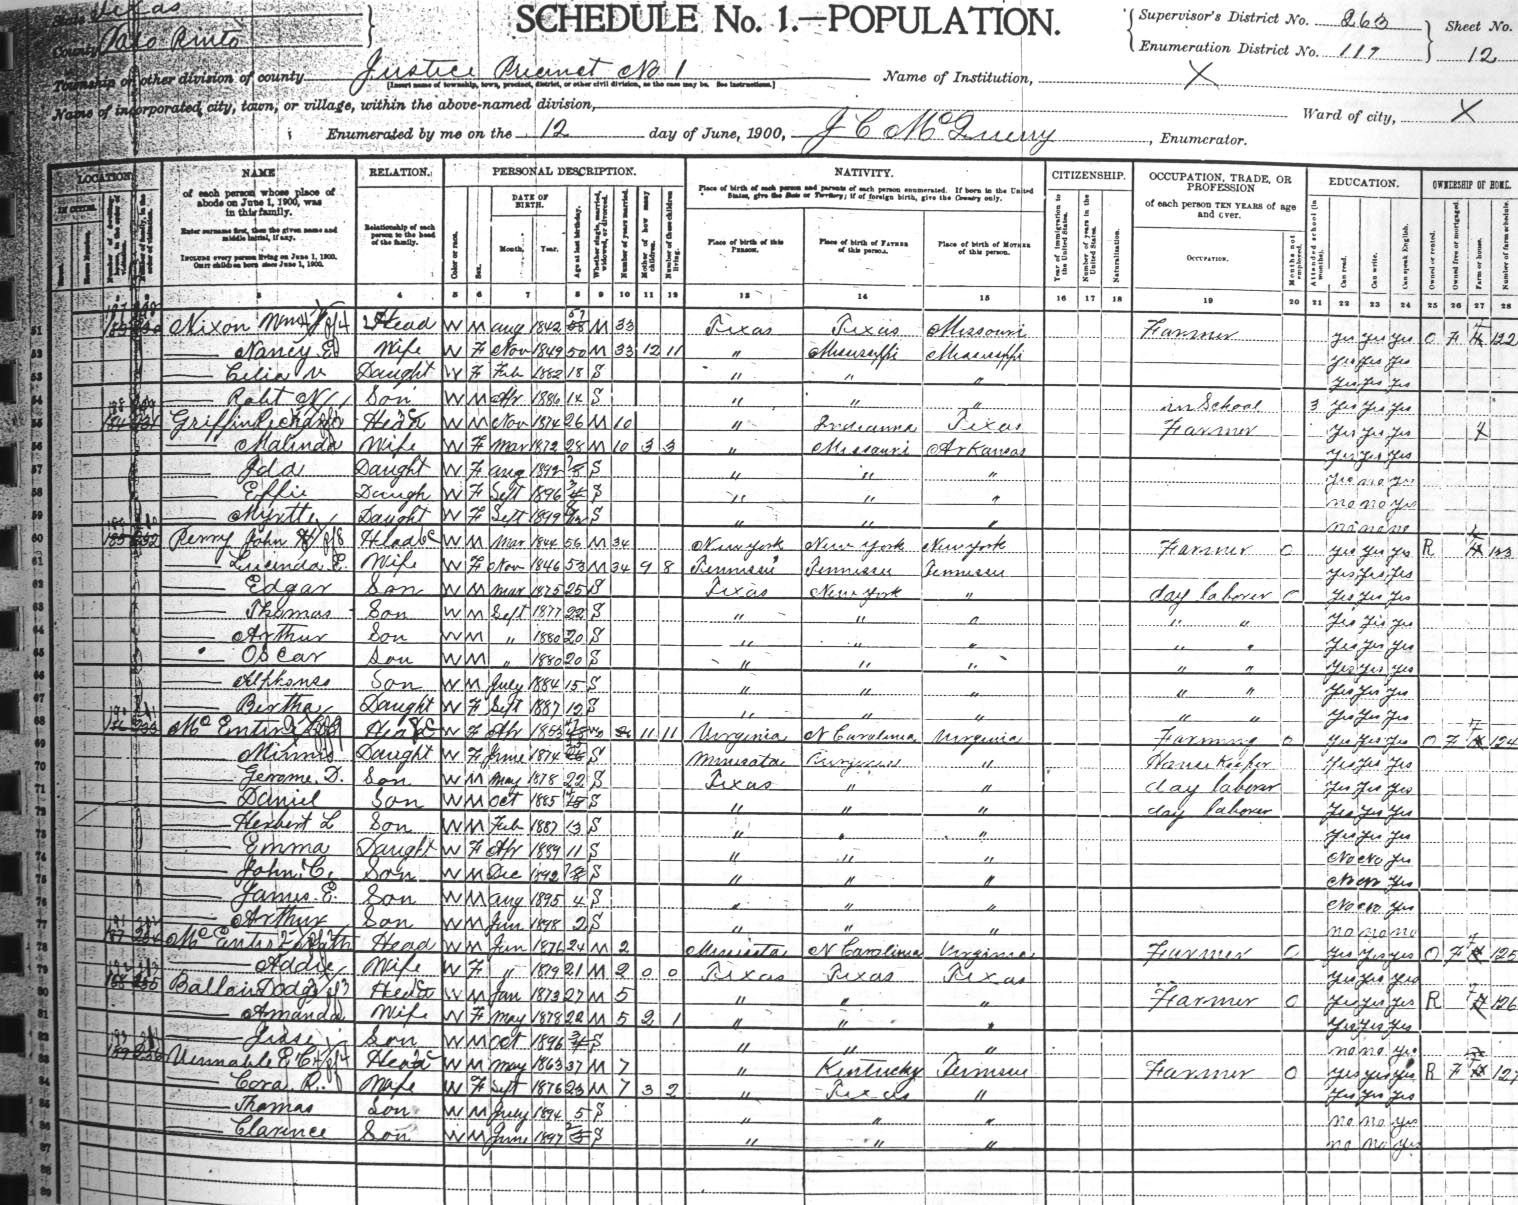 State Texas
County Palo Pinto
SCHEDULE No. 1.—POPULATION.
Supervisor's District No. 263
Enumeration District No. 117
Sheet No. 12
Township or other division of county Justice Precinct No 1
[Insert name of township, town, precinct, district, or other civil division, as the case may be. See instructions.]
Name of Institution, X
Name of incorporated city, town, or village, within the above-named division,
Ward of city, X
Enumerated by me on the 12 day of June, 1900, J C McQuerry, Enumerator.
LOCATION. NAME RELATION. PERSONAL DESCRIPTION. NATIVITY. CITIZENSHIP. OCCUPATION, TRADE, OR PROFESSION EDUCATION. OWNERSHIP OF HOME.
IN CITIES. Street. House Number.
of each person whose place of abode on June 1, 1900, was in this family.
Enter surname first, then the given name and middle initial, if any.
INCLUDE every person living on June 1, 1900. OMIT children born since June 1, 1900.
Relationship of each person to the head of the family.
Color or race. Sex. DATE OF BIRTH. Month. Year. Age at last birthday. Whether single, married, widowed, or divorced. Number of years married. Mother of how many children. Number of these children living.
Place of birth of each person and parents of each person enumerated. If born in the United States, give the State or Territory; if of foreign birth, give the Country only.
Place of birth of this PERSON. Place of birth of FATHER of this person. Place of birth of MOTHER of this person.
Year of immigration to the United States. Number of years in the United States. Naturalization.
of each person TEN YEARS of age and over.
OCCUPATION. Months not employed.
Attended school (in months). Can read. Can write. Can speak English.
Owned or rented. Owned free or mortgaged. Farm or house. Number of farm schedule.
3 4 5 6 7 8 9 10 11 12 13 14 15 16 17 18 19 20 21 22 23 24 25 26 27 28
51 Nixon Head W M Aug 1842 M 33 Texas Texas Missouri Farmer yes yes yes O F 122
52 Nancy E Wife W F Nov 1849 50 M 33 12 11 " Mississippi Mississippi yes yes yes
53 Celia Daught W F Feb 1882 18 S " " " yes yes yes
54 Robt N Son W M Apr 1886 14 S " " " in School 3 yes yes yes
55 Griffin Head W M Nov 1874 26 M 10 " Indianna Texas Farmer yes yes yes
56 Malinda Wife W F Mar 1872 28 M 10 3 3 " Missouri Arkansas yes yes yes
57 Ida Daught W F Aug 1892 S " " " yes no yes
58 Effie Daugh W F Sept 1896 S " " " no no yes
59 Myrtle Daught W F Sept 1899 S " " " no no no
60 Perry John Head W M Mar 1844 56 M 34 New York New York New York Farmer 0 yes yes yes R 123
61 Lucinda E. Wife W F Nov 1846 53 M 34 9 8 Tennissee Tennissee Tennissee yes yes yes
62 Edgar Son W M Mar 1875 25 S Texas New York " day laborer 0 yes yes yes
63 Thomas Son W M Sept 1877 22 S " " " " " yes yes yes
64 Arthur Son W M " 1880 20 S " " " " " yes yes yes
65 Oscar Son W M " 1880 20 S " " " " " yes yes yes
66 Alphonso Son W M July 1884 15 S " " " " " yes yes yes
67 Bertha Daught W F Sept 1887 12 S " " " " " yes yes yes
68 McEntire Head W F Apr 1853 11 11 Virginia N Carolina Virginia Farming 0 yes yes yes O F 124
69 Minnie Daught W F June 1874 S Minisota " House Keeper yes yes yes
70 Jerome D. Son W M May 1878 22 S Texas " " day laborer yes yes yes
71 Daniel Son W M Oct 1885 S " " " day laborer yes yes yes
72 Herbert L Son W M Feb 1887 13 S " " " yes yes yes
73 Emma Daught W F Apr 1889 11 S " " " No No yes
74 John C. Son W M Dec 1892 S " " " No No yes
75 James E. Son W M Aug 1895 4 S " " " No No yes
76 Arthur Son W M Jun 1898 2 S " " " no no no
77 McEntire Head W M Jun 1876 24 M 2 Minisota N Carolina Virginia Farmer 0 yes yes yes O F 125
78 Addie Wife W F " 1879 21 M 2 0 0 Texas Texas Texas yes yes yes
79 Head W M Jan 1873 27 M 5 " " " Farmer 0 yes yes yes R 126
80 Amanda Wife W F May 1878 22 M 5 2 1 " " " yes yes yes
81 Jesse Son W M Oct 1896 S " " " no no yes
82 E C Head W M May 1863 37 M 7 " Kentucky Tennissee Farmer 0 yes yes yes R F 127
83 Cora R. Wife W F Sept 1876 23 M 7 3 2 " Texas " yes yes yes
84 Thomas Son W M July 1894 5 S " " " no no yes
85 Clarence Son W M June 1897 S " " " no no yes
86
87
88
89